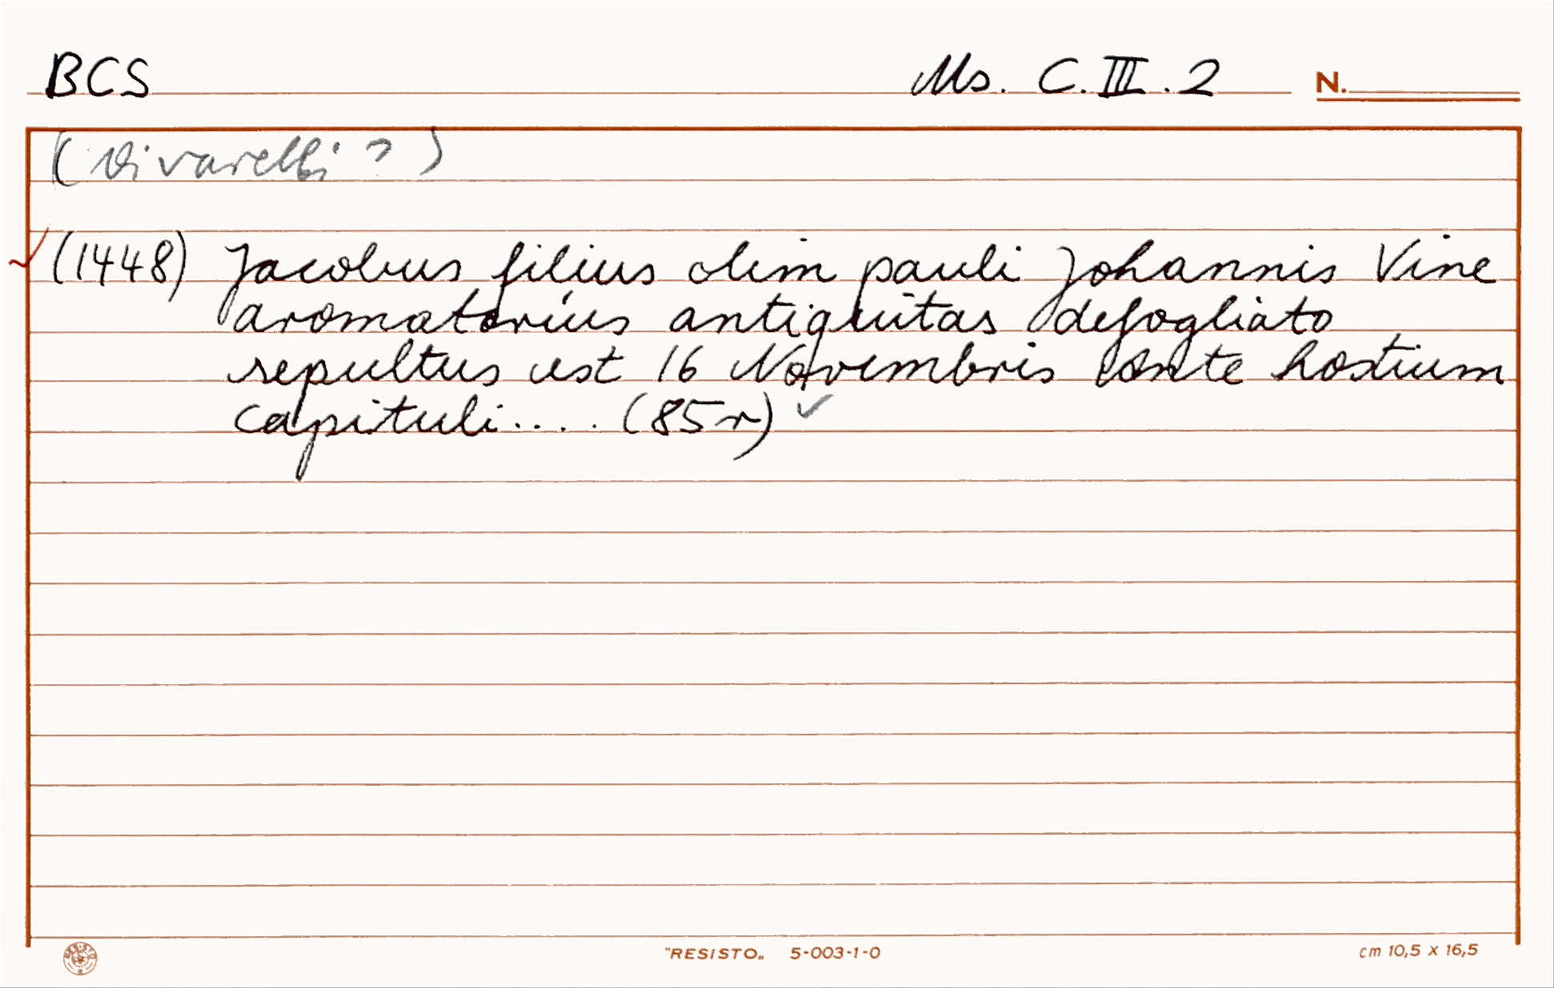 BCS Ms. C.III.2 N.
(Vivarelli?)
(1448) Jacobus filius olim pauli Johannis Vine
aromatorius antiquitas defogliato
sepultus est 16 Novembris ante hostium
capituli.... (85r)
"RESISTO„ 5-003-1-0 cm 10,5 x 16,5